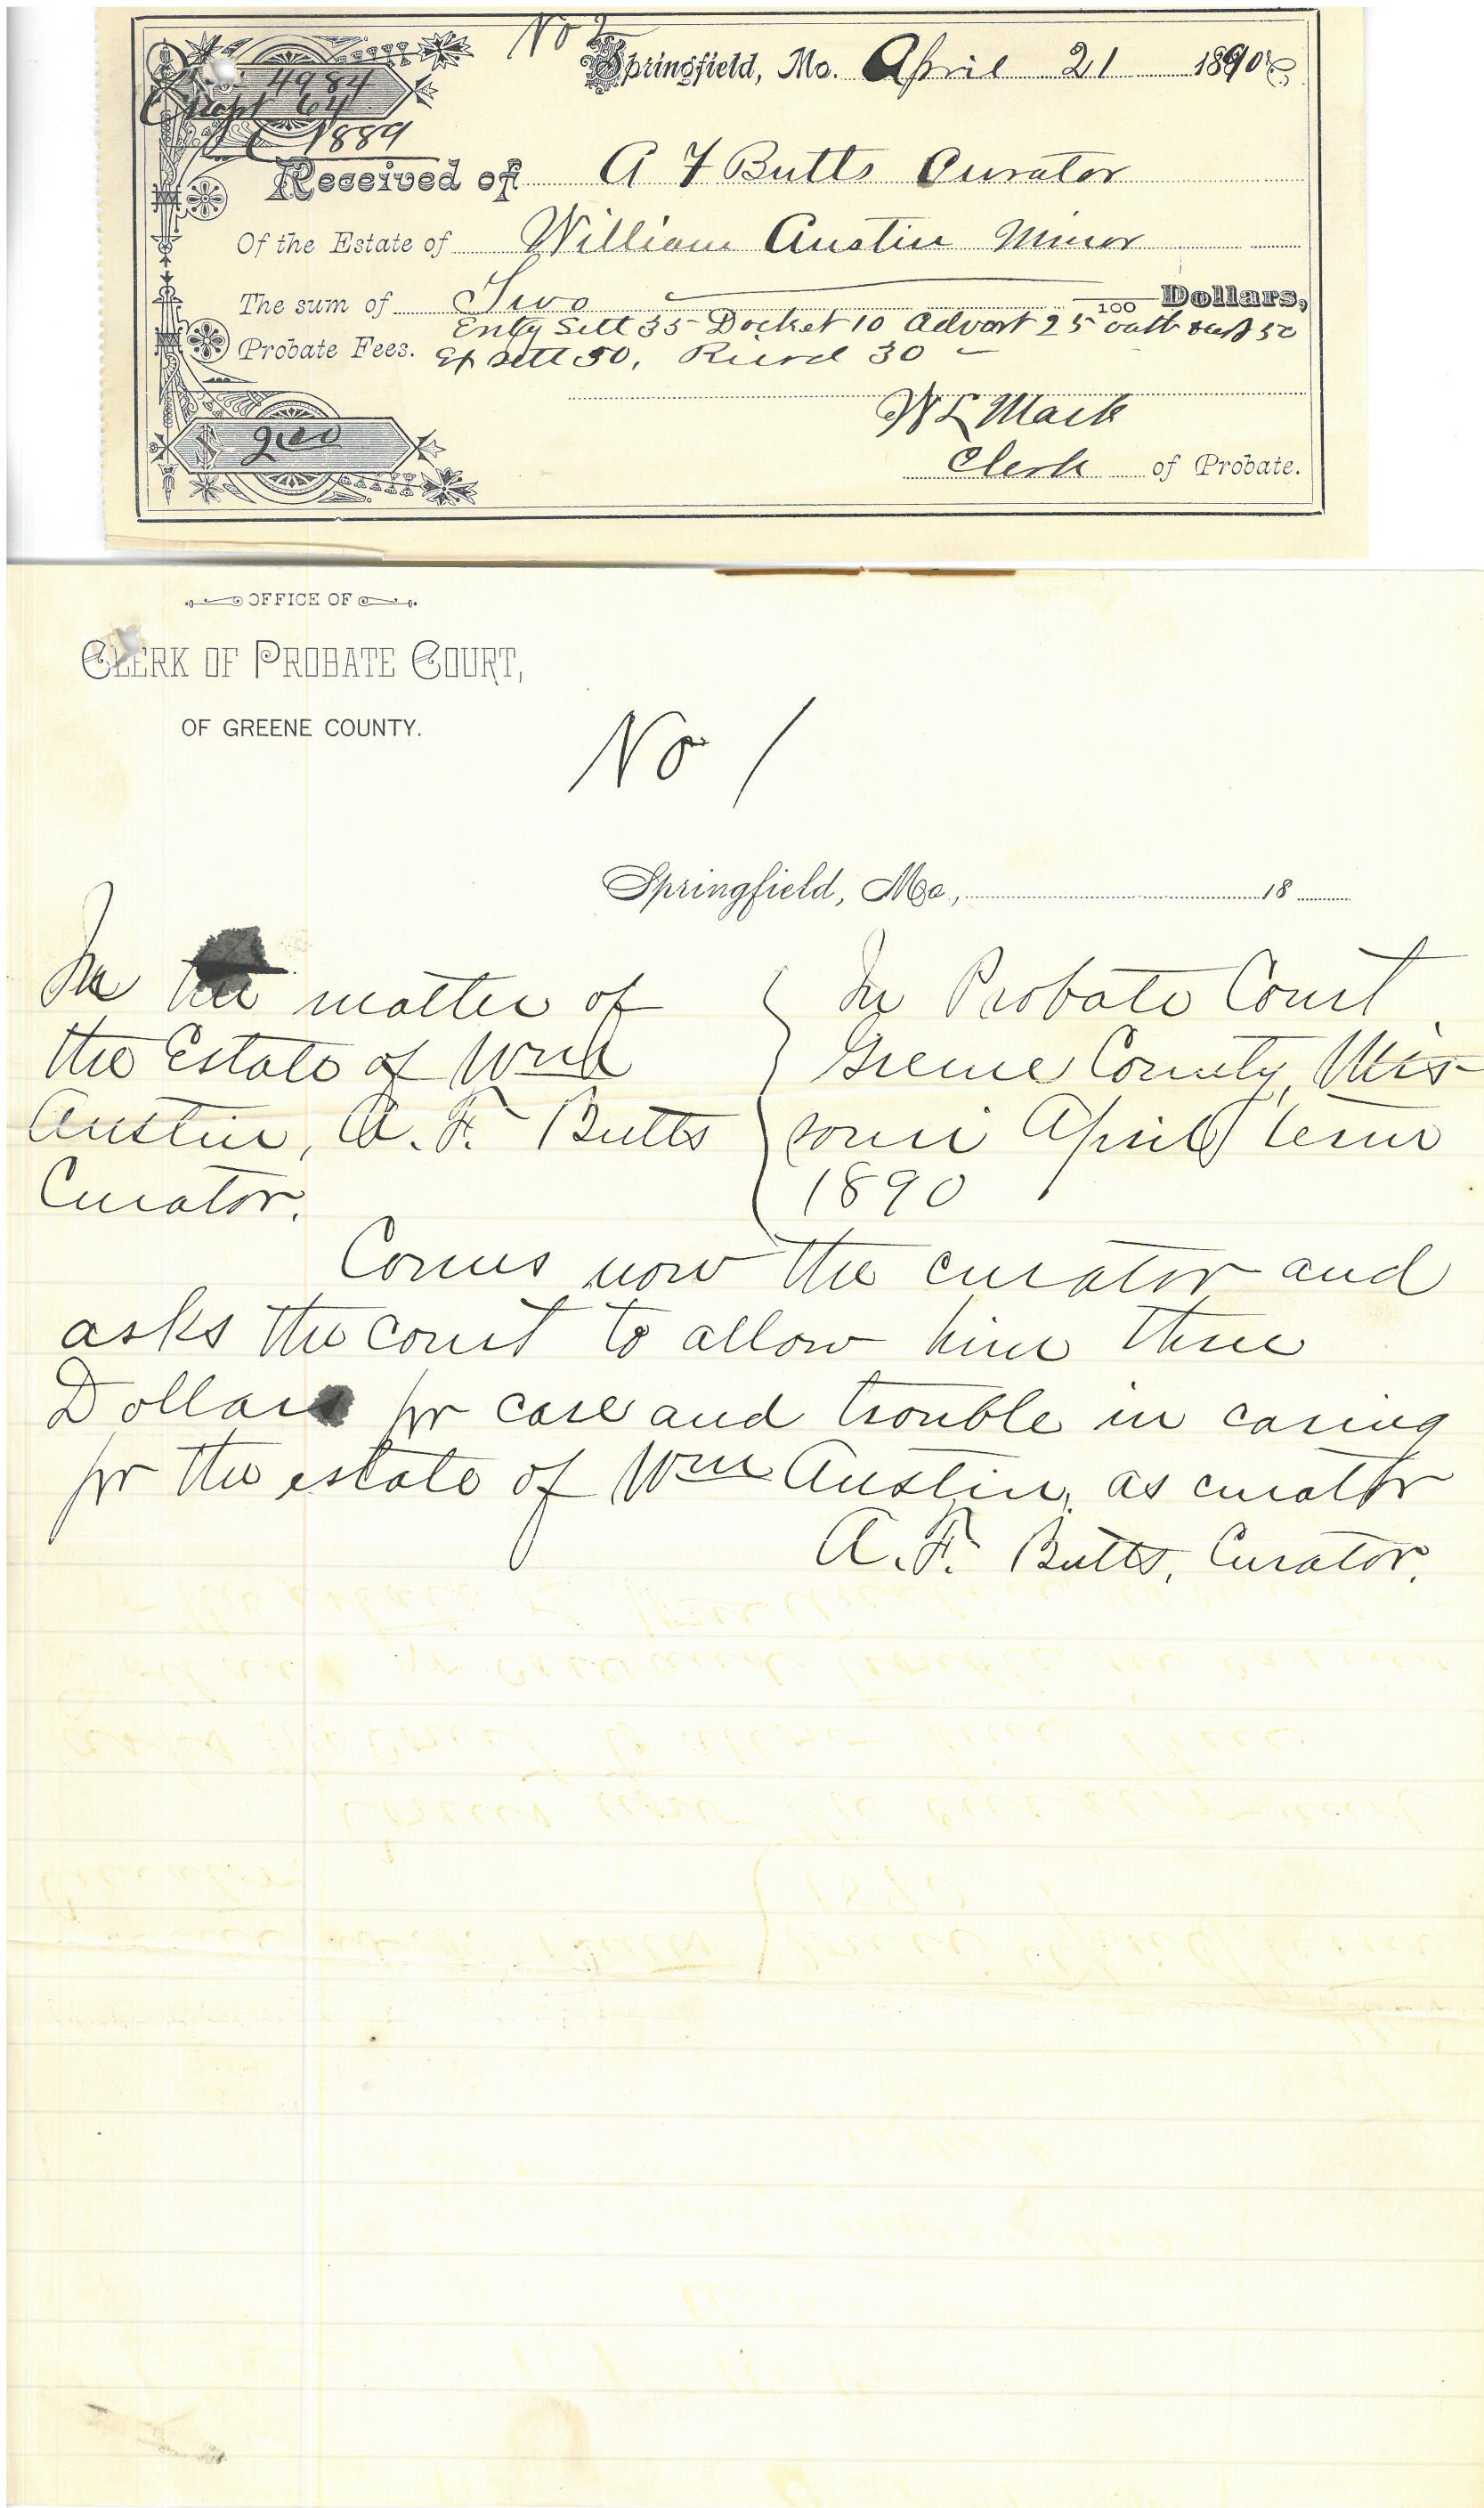 No 2
Springfield, Mo. April 21 1890
4984
64
1889
Received of A F Butts Curator
Of the Estate of William Austin Minor
The sum of Two /100 Dollars,
Entg Sett 35 Docket 10 Advert 25 oath 50
Probate Fees. Ex Sett 50, 30
W L Mack
$ 2.00
Clerk of Probate.
OFFICE OF
CLERK OF PROBATE COURT,
OF GREENE COUNTY.
No 1
Springfield, Mo., 18
In the matter of
the Estate of Wm
Austin, A. F. Butts
Curator.
In Probate Court
Greene County, Mis-
souri April term
1890
Comes now the curator and
asks the court to allow him three
Dollars for care and trouble in caring
for the estate of Wm Austin, as curator
A. F. Butts, Curator.